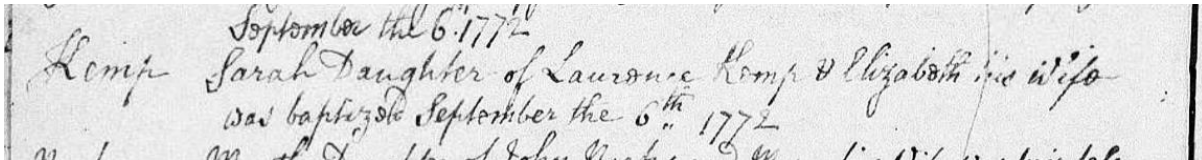 September the 6. 1772
Kemp Sarah Daughter of Laurence Kemp & Elizabeth his Wife
was baptized September the 6th 1772
Daughter of John